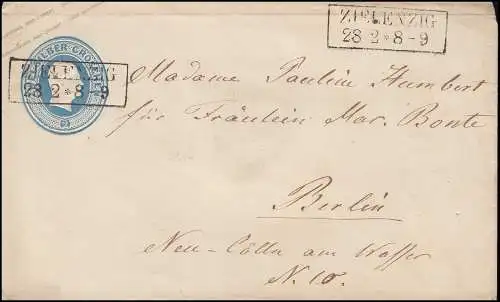 ZIELENZIG
28 2 * 8 - 9
SILBER GROSCHEN
ZIELENZIG
28 2 * 8 - 9
Madame Paulin Humbert
für Fräulein Mar. Bonte
Berlin
Neu-Cölln am Wasser
N. 10.